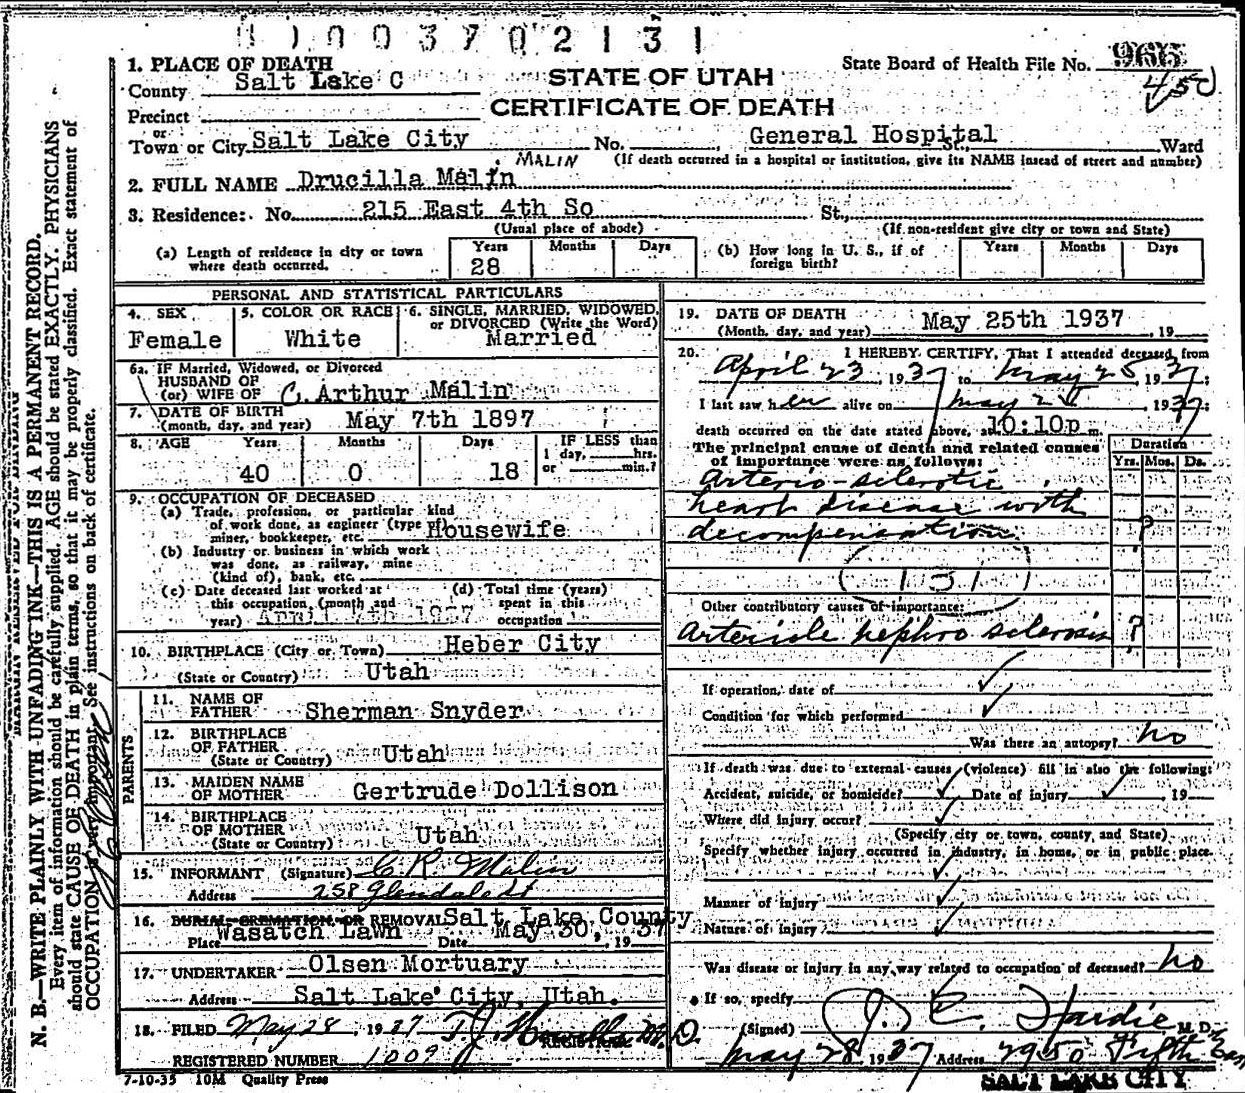 1003702131
1. PLACE OF DEATH
County Salt Lake C
STATE OF UTAH
CERTIFICATE OF DEATH
State Board of Health File No. 965
450
Precinct
or
Town or City Salt Lake City No. General Hospital St., Ward
(If death occurred in a hospital or institution, give its NAME instead of street and number)
MALIN
2. FULL NAME Drucilla Malin
3. Residence: No. 215 East 4th So St.,
(Usual place of abode) (If non-resident give city or town and State)
(a) Length of residence in city or town where death occurred. Years 28 Months Days
(b) How long in U. S., if of foreign birth? Years Months Days
PERSONAL AND STATISTICAL PARTICULARS
4. SEX Female
5. COLOR OR RACE White
6. SINGLE, MARRIED, WIDOWED, or DIVORCED (Write the Word) Married
6a. IF Married, Widowed, or Divorced
HUSBAND OF
(or) WIFE OF C. Arthur Malin
7. DATE OF BIRTH
(month, day, and year) May 7th 1897
8. AGE Years 40 Months 0 Days 18 IF LESS than 1 day, hrs. or min.?
9. OCCUPATION OF DECEASED
(a) Trade, profession, or particular kind
of work done, as engineer (type of)
miner, bookkeeper, etc. Housewife
(b) Industry or business in which work
was done, as railway, mine
(kind of), bank, etc.
(c) Date deceased last worked at
this occupation, (month and
year) 1937
(d) Total time (years)
spent in this
occupation
10. BIRTHPLACE (City or Town) Heber City
(State or Country) Utah
PARENTS
11. NAME OF
FATHER Sherman Snyder
12. BIRTHPLACE
OF FATHER
(State or Country) Utah
13. MAIDEN NAME
OF MOTHER Gertrude Dollison
14. BIRTHPLACE
OF MOTHER
(State or Country) Utah
15. INFORMANT (Signature) C. R. Malin
Address 258 Glendale St
16. BURIAL CREMATION OR REMOVAL Salt Lake County
Place Wasatch Lawn Date May 30, 1937
17. UNDERTAKER Olsen Mortuary
Address Salt Lake City, Utah.
18. FILED May 28, 1937 T.J. Howells M.D.
REGISTRAR
REGISTERED NUMBER 1009
7-10-35 10M Quality Press
19. DATE OF DEATH
(Month, day, and year) May 25th 1937, 19
20. I HEREBY CERTIFY, That I attended deceased from
April 23, 1937 to May 25, 1937;
I last saw her alive on May 25 1937;
death occurred on the date stated above, at 10:10p m.
The principal cause of death and related causes
of importance were as follows:
Duration
Yrs. Mos. Ds.
Arterio-sclerotic
heart disease with
decompensation ?
131
Other contributory causes of importance:
Arteriole nephro sclerosis ?
If operation, date of
Condition for which performed
Was there an autopsy? no
If death was due to external causes (violence) fill in also the following:
Accident, suicide, or homicide? Date of injury , 19
Where did injury occur?
(Specify city or town, county, and State)
Specify whether injury occurred in industry, in home, or in public place.
Manner of injury
Nature of injury
Was disease or injury in any way related to occupation of deceased? no
If so, specify
(Signed) J. E. Hardie M. D.
May 28 1937 Address 2950 Fifth East
SALT LAKE CITY
N. B.—WRITE PLAINLY, WITH UNFADING INK—THIS IS A PERMANENT RECORD.
Every item of information should be carefully supplied. AGE should be stated EXACTLY. PHYSICIANS
should state CAUSE OF DEATH in plain terms, so that it may be properly classified. Exact statement of
OCCUPATION is very important. See instructions on back of certificate.